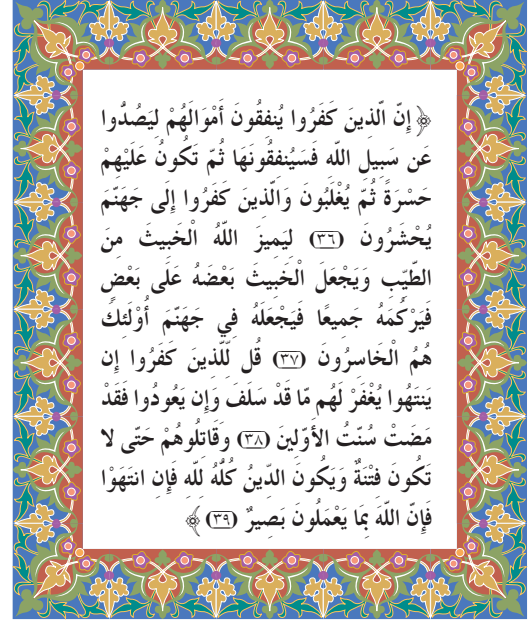 ﴿ إِنَّ الَّذِينَ كَفَرُوا يُنفِقُونَ أَمْوَالَهُمْ لِيَصُدُّوا
عَن سَبِيلِ اللَّهِ فَسَيُنفِقُونَهَا ثُمَّ تَكُونُ عَلَيْهِمْ
حَسْرَةً ثُمَّ يُغْلَبُونَ وَالَّذِينَ كَفَرُوا إِلَى جَهَنَّمَ
يُحْشَرُونَ (٣٦) لِيَمِيزَ اللَّهُ الْخَبِيثَ مِنَ
الطَّيِّبِ وَيَجْعَلَ الْخَبِيثَ بَعْضَهُ عَلَى بَعْضٍ
فَيَرْكُمَهُ جَمِيعًا فَيَجْعَلَهُ فِي جَهَنَّمَ أُوْلَئِكَ
هُمُ الْخَاسِرُونَ (٣٧) قُل لِّلَّذِينَ كَفَرُوا إِن
يَنتَهُوا يُغْفَرْ لَهُم مَّا قَدْ سَلَفَ وَإِن يَعُودُوا فَقَدْ
مَضَتْ سُنَّتُ الأَوَّلِينَ (٣٨) وَقَاتِلُوهُمْ حَتَّى لا
تَكُونَ فِتْنَةٌ وَيَكُونَ الدِّينُ كُلُّهُ لِلَّهِ فَإِنِ انتَهَوْا
فَإِنَّ اللَّهَ بِمَا يَعْمَلُونَ بَصِيرٌ (٣٩) ﴾